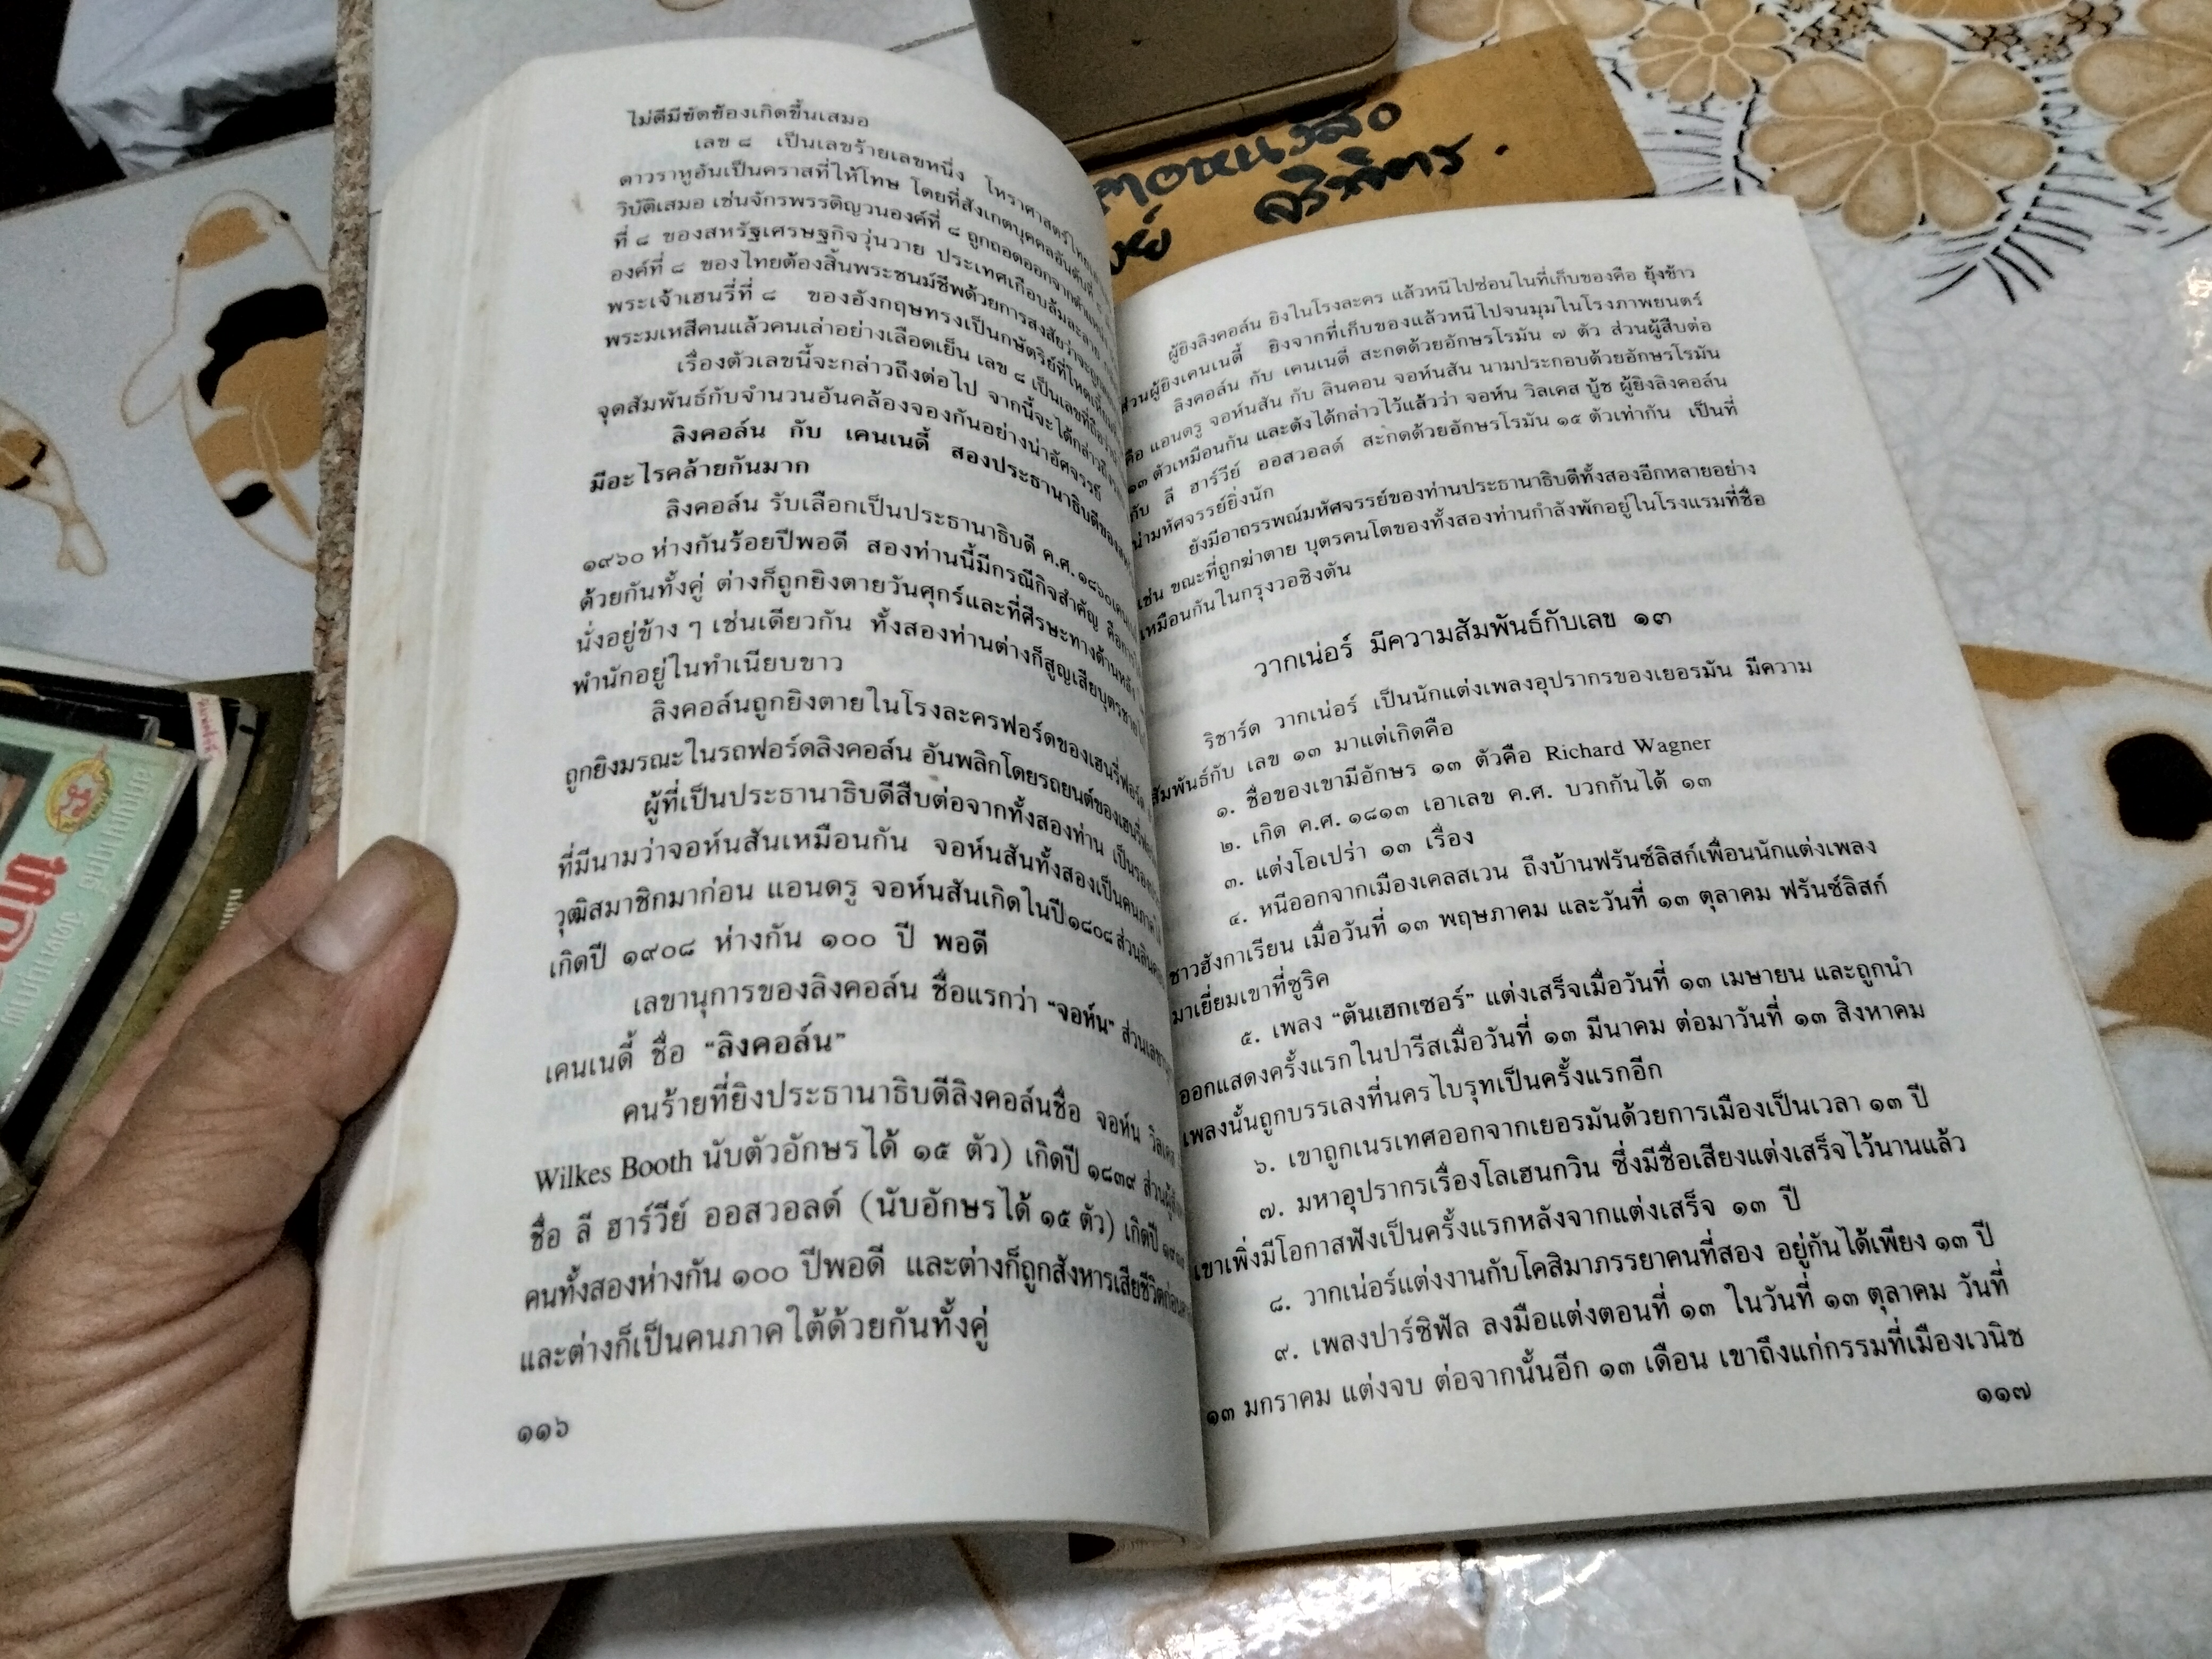 ไม่ดีมีขัดข้องเกิดขึ้นเสมอ
เลข ๘ เป็นเลขร้ายเลขหนึ่ง โหราศาสตร์
ดาวราหูอันเป็นคราสที่ให้โทษ โดยที่สังเกตบุคคลอันดับที่
วิบัติเสมอ เช่นจักรพรรดิญวนองค์ที่ ๘ ถูกถอดออกจากตำแหน่ง
ที่ ๘ ของสหรัฐเศรษฐกิจวุ่นวาย ประเทศเกือบล้มละลาย
องค์ที่ ๘ ของไทยต้องสิ้นพระชนม์ชีพด้วยการสงสัยว่าจะถูก
พระเจ้าเฮนรี่ที่ ๘ ของอังกฤษทรงเป็นกษัตริย์ที่โหดเหี้ยม
พระมเหสีคนแล้วคนเล่าอย่างเลือดเย็น เลข ๘ เป็นเลขที่ถือ
เรื่องตัวเลขนี้จะกล่าวถึงต่อไป จากนี้จะได้กล่าวถึง
จุดสัมพันธ์กับจำนวนอันคล้องจองกันอย่างน่าอัศจรรย์
ลิงคอล์น กับ เคนเนดี้ สองประธานาธิบดีของ
มีอะไรคล้ายกันมาก
ลิงคอล์น รับเลือกเป็นประธานาธิบดี ค.ศ. ๑๘๖๐
๑๙๖๐ ห่างกันร้อยปีพอดี สองท่านนี้มีกรณีกิจสำคัญ คือ
ด้วยกันทั้งคู่ ต่างก็ถูกยิงตายวันศุกร์และที่ศีรษะทางด้านหลัง
นั่งอยู่ข้าง ๆ เช่นเดียวกัน ทั้งสองท่านต่างก็สูญเสียบุตรชาย
พำนักอยู่ในทำเนียบขาว
ลิงคอล์นถูกยิงตายในโรงละครฟอร์ดของเฮนรี่ฟอร์ด
ถูกยิงมรณะในรถฟอร์ดลิงคอล์น อันพลิกโดยรถยนต์ของเฮนรี่
ผู้ที่เป็นประธานาธิบดีสืบต่อจากทั้งสองท่าน เป็น
ที่มีนามว่าจอห์นสันเหมือนกัน จอห์นสันทั้งสองเป็นคนภาคใต้
วุฒิสมาชิกมาก่อน แอนดรู จอห์นสันเกิดในปี ๑๘๐๘ ส่วน
เกิดปี ๑๙๐๘ ห่างกัน ๑๐๐ ปี พอดี
เลขานุการของลิงคอล์น ชื่อแรกว่า “จอห์น” ส่วน
เคนเนดี้ ชื่อ “ลิงคอล์น”
คนร้ายที่ยิงประธานาธิบดีลิงคอล์นชื่อ จอห์น วิลเคส
Wilkes Booth นับตัวอักษรได้ ๑๕ ตัว) เกิดปี ๑๘๓๙
ชื่อ ลี ฮาร์วีย์ ออสวอลด์ (นับอักษรได้ ๑๕ ตัว) เกิดปี
คนทั้งสองห่างกัน ๑๐๐ ปีพอดี และต่างก็ถูกสังหารเสียชีวิตก่อน
และต่างก็เป็นคนภาคใต้ด้วยกันทั้งคู่
๑๑๖
ผู้ยิงลิงคอล์น ยิงในโรงละคร แล้วหนีไปซ่อนในที่เก็บของคือ ยุ้งข้าว
ส่วนผู้ยิงเคนเนดี้ ยิงจากที่เก็บของแล้วหนีไปจนมุมในโรงภาพยนตร์
ลิงคอล์น กับ เคนเนดี่ สะกดด้วยอักษรโรมัน ๗ ตัว ส่วนผู้สืบต่อ
คือ แอนดรู จอห์นสัน กับ ลินคอน จอห์นสัน นามประกอบด้วยอักษรโรมัน
๑๓ ตัวเหมือนกัน และดังได้กล่าวไว้แล้วว่า จอห์น วิลเคส บู๊ช ผู้ยิงลิงคอล์น
กับ ลี ฮาร์วีย์ ออสวอลด์ สะกดด้วยอักษรโรมัน ๑๕ ตัวเท่ากัน เป็นที่
น่ามหัศจรรย์ยิ่งนัก
ยังมีอาถรรพณ์มหัศจรรย์ของท่านประธานาธิบดีทั้งสองอีกหลายอย่าง
เช่น ขณะที่ถูกฆ่าตาย บุตรคนโตของทั้งสองท่านกำลังพักอยู่ในโรงแรมที่ชื่อ
เหมือนกันในกรุงวอชิงตัน
วากเน่อร์ มีความสัมพันธ์กับเลข ๑๓
ริชาร์ด วากเน่อร์ เป็นนักแต่งเพลงอุปรากรของเยอรมัน มีความ
สัมพันธ์กับ เลข ๑๓ มาแต่เกิดคือ
๑. ชื่อของเขามีอักษร ๑๓ ตัวคือ Richard Wagner
๒. เกิด ค.ศ. ๑๘๑๓ เอาเลข ค.ศ. บวกกันได้ ๑๓
๓. แต่งโอเปร่า ๑๓ เรื่อง
๔. หนีออกจากเมืองเคลสเวน ถึงบ้านฟรันซ์ลิสก์เพื่อนนักแต่งเพลง
ชาวฮังกาเรียน เมื่อวันที่ ๑๓ พฤษภาคม และวันที่ ๑๓ ตุลาคม ฟรันซ์ลิสก์
มาเยี่ยมเขาที่ซูริค
๕. เพลง “ตันเฮกเซอร์” แต่งเสร็จเมื่อวันที่ ๑๓ เมษายน และถูกนำ
ออกแสดงครั้งแรกในปารีสเมื่อวันที่ ๑๓ มีนาคม ต่อมาวันที่ ๑๓ สิงหาคม
เพลงนั้นถูกบรรเลงที่นครไบรุทเป็นครั้งแรกอีก
๖. เขาถูกเนรเทศออกจากเยอรมันด้วยการเมืองเป็นเวลา ๑๓ ปี
๗. มหาอุปรากรเรื่องโลเฮนกวิน ซึ่งมีชื่อเสียงแต่งเสร็จไว้นานแล้ว
เขาเพิ่งมีโอกาสฟังเป็นครั้งแรกหลังจากแต่งเสร็จ ๑๓ ปี
๘. วากเน่อร์แต่งงานกับโคสิมาภรรยาคนที่สอง อยู่กันได้เพียง ๑๓ ปี
๙. เพลงปาร์ซิฟัล ลงมือแต่งตอนที่ ๑๓ ในวันที่ ๑๓ ตุลาคม วันที่
๑๓ มกราคม แต่งจบ ต่อจากนั้นอีก ๑๓ เดือน เขาถึงแก่กรรมที่เมืองเวนิช
๑๑๗